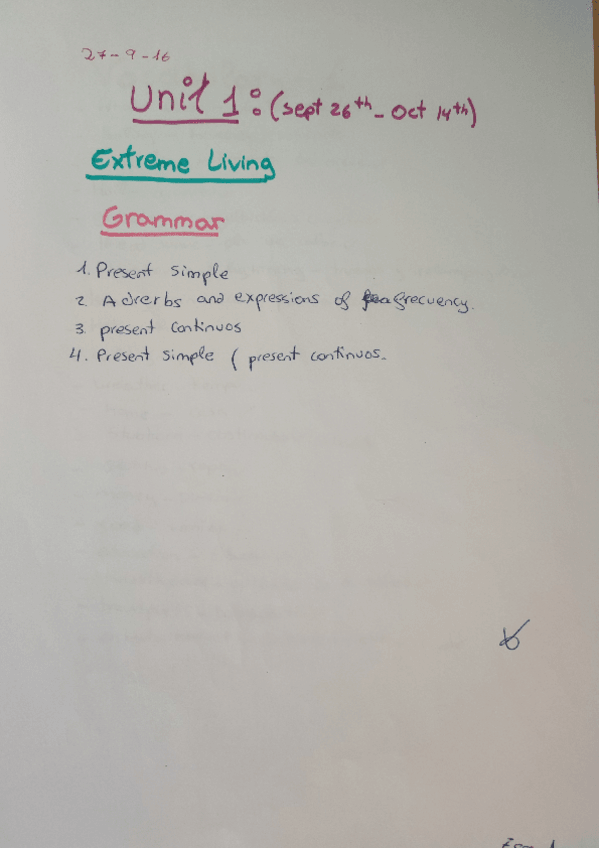 27-9-16
Unit 1: (sept 26th - Oct 14th)
Extreme Living
Grammar
1. Present simple
2 Adverbs and expressions of frecuency.
3 present continuos
4. Present simple ( present continuos.